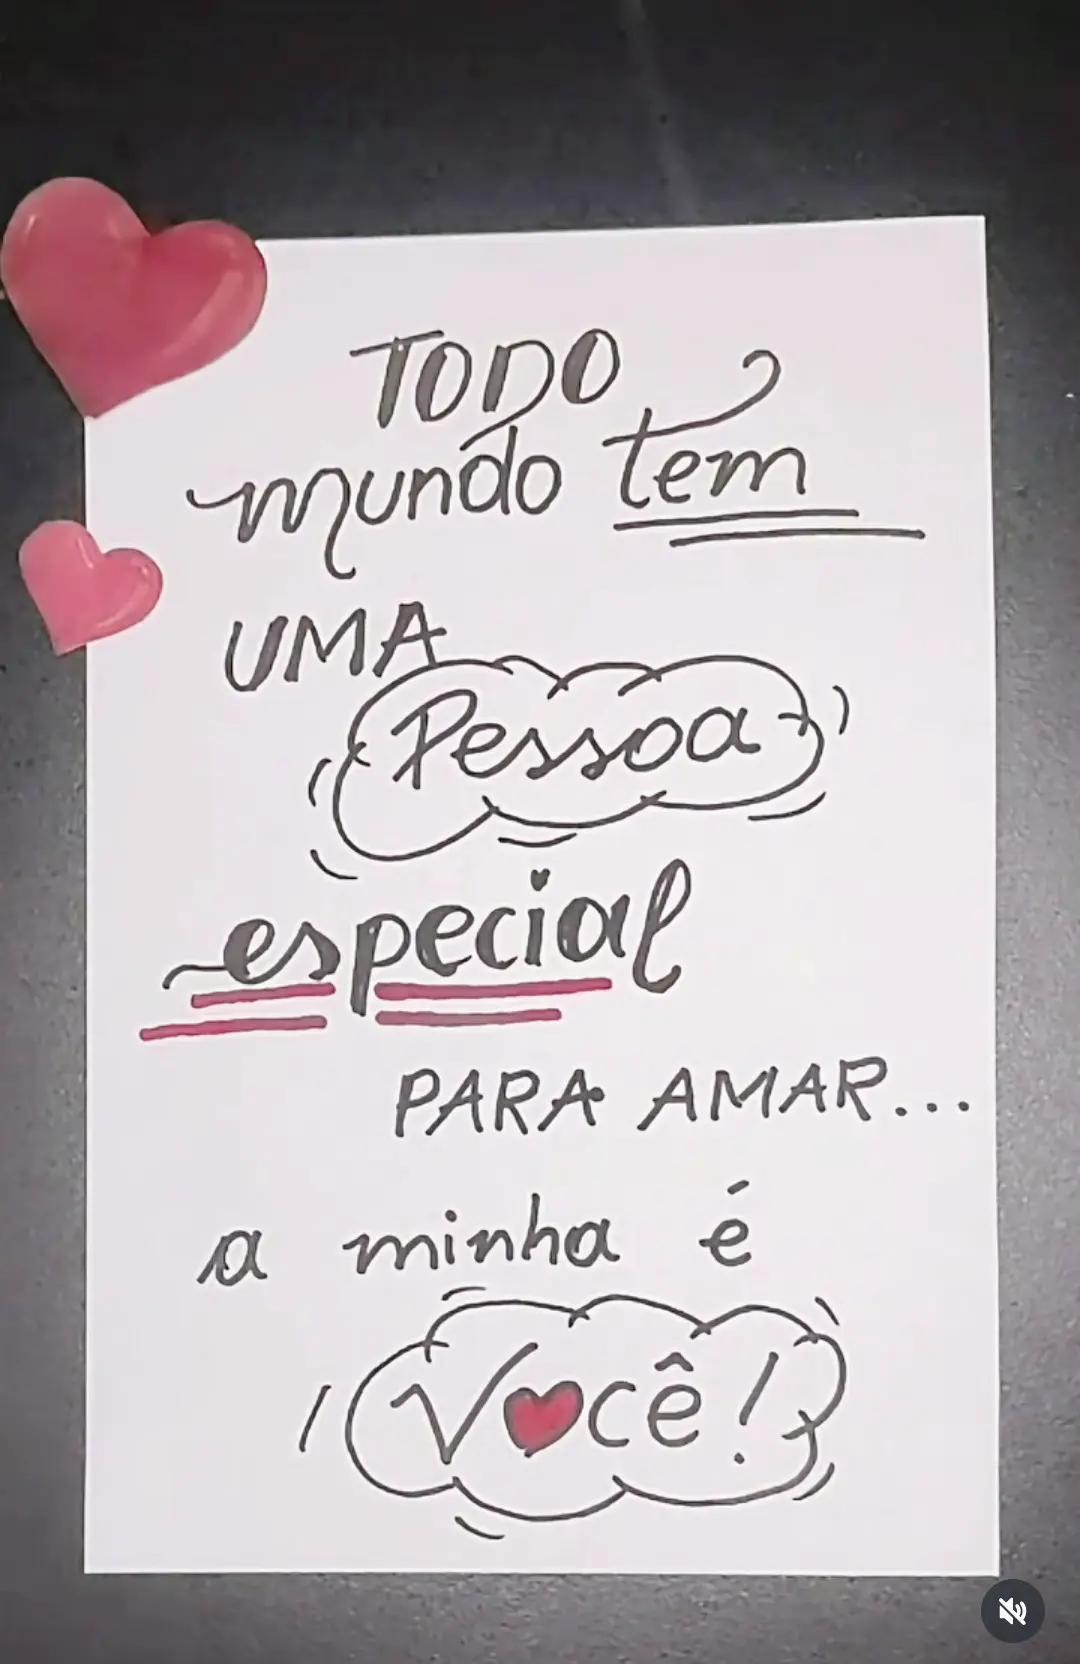 TODO
mundo tem
UMA
Pessoa
especial
PARA AMAR...
a minha é
Você!